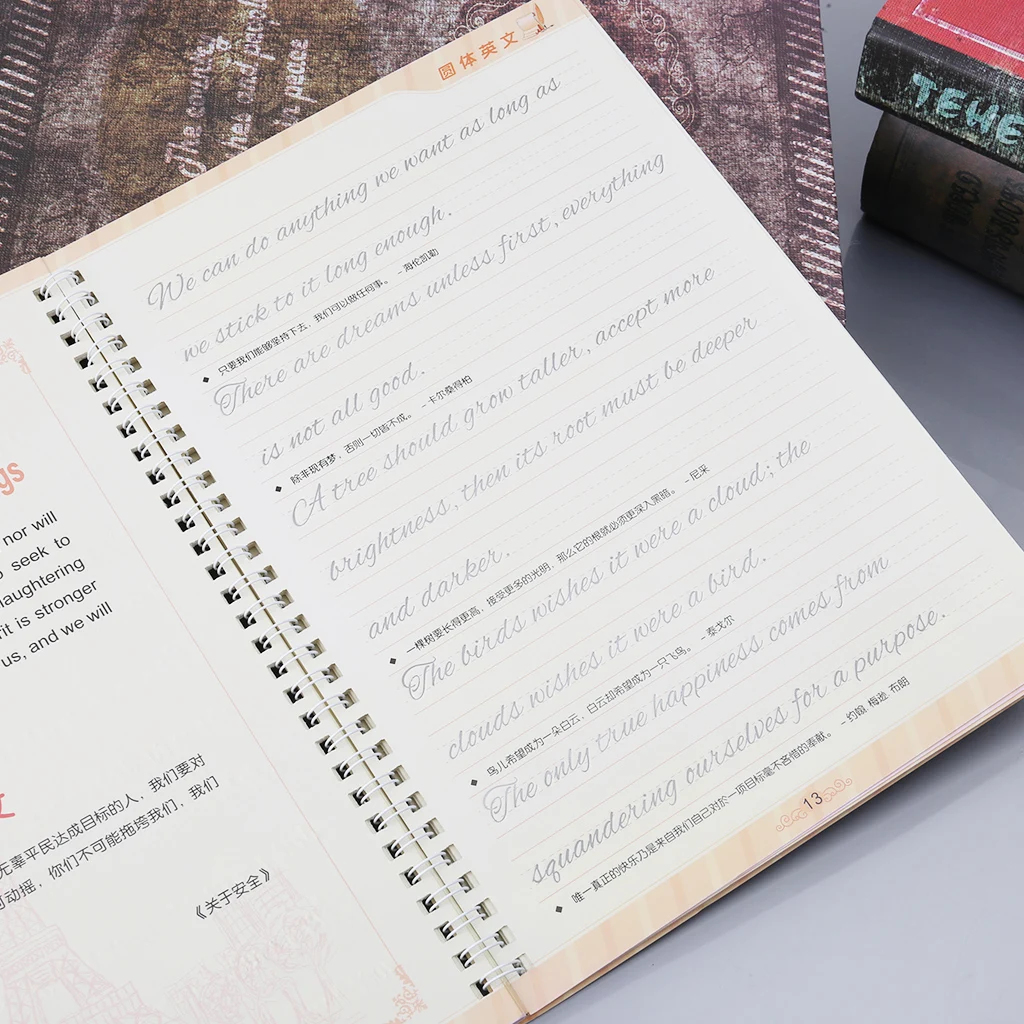 圆体英文
We can do anything we want as long as
we stick to it long enough.
◆ 只要我们能够坚持下去，我们可以做任何事。 -海伦凯勒
There are dreams unless first, everything
is not all good.
◆ 除非现有梦，否则一切皆不成。 -卡尔桑得柏
A tree should grow taller, accept more
brightness, then its root must be deeper
and darker.
◆ 一棵树要长得更高，接受更多的光明，那么它的根就必须更深入黑暗。 -尼采
The birds wishes it were a cloud; the
clouds wishes it were a bird.
◆ 鸟儿希望成为一朵白云，白云却希望成为一只飞鸟。 -泰戈尔
The only true happiness comes from
squandering ourselves for a purpose.
◆ 唯一真正的快乐乃是来自我们自己对於一项目标毫不吝惜的奉献。 -约翰·梅逊·布朗
13
gs
nor will
seek to
laughtering
it is stronger
us, and we will
文
无辜平民达成目标的人，我们要对
动摇，你们不可能拖垮我们，我们
《关于安全》
TEWE